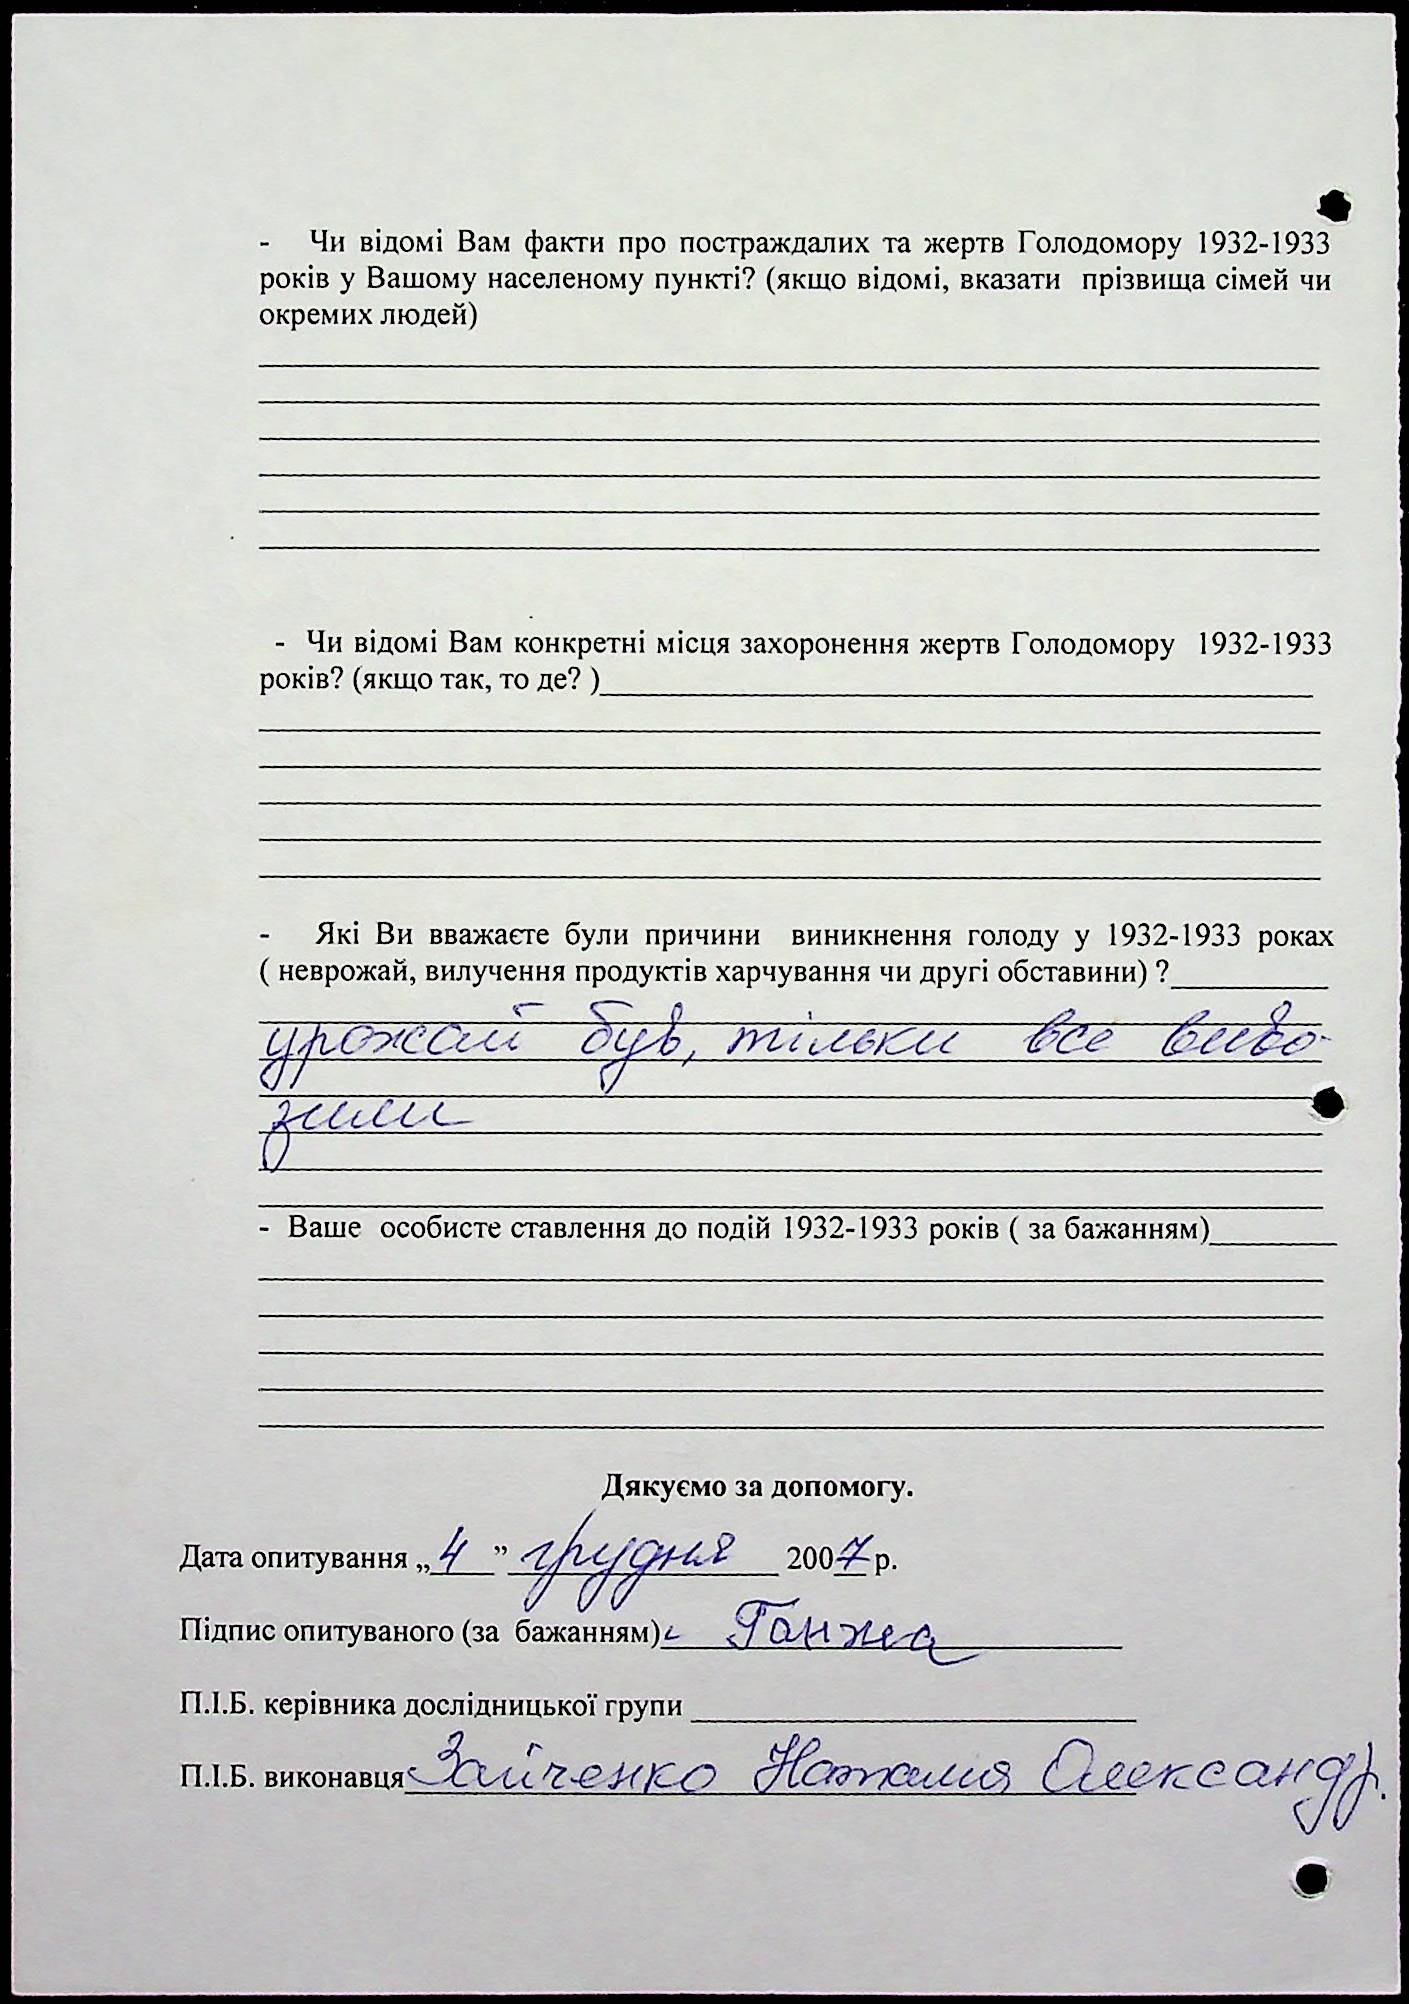 - Чи відомі Вам факти про постраждалих та жертв Голодомору 1932-1933
років у Вашому населеному пункті? (якщо відомі, вказати прізвища сімей чи
окремих людей)
- Чи відомі Вам конкретні місця захоронення жертв Голодомору 1932-1933
років? (якщо так, то де? )
- Які Ви вважаєте були причини виникнення голоду у 1932-1933 роках
( неврожай, вилучення продуктів харчування чи другі обставини) ?
урожай був, тільки все виво-
зили
- Ваше особисте ставлення до подій 1932-1933 років ( за бажанням)
Дякуємо за допомогу.
Дата опитування „4” грудня 2007 р.
Підпис опитуваного (за бажанням) Ганжа
П.І.Б. керівника дослідницької групи
П.І.Б. виконавця Зайченко Наталия Олександр.